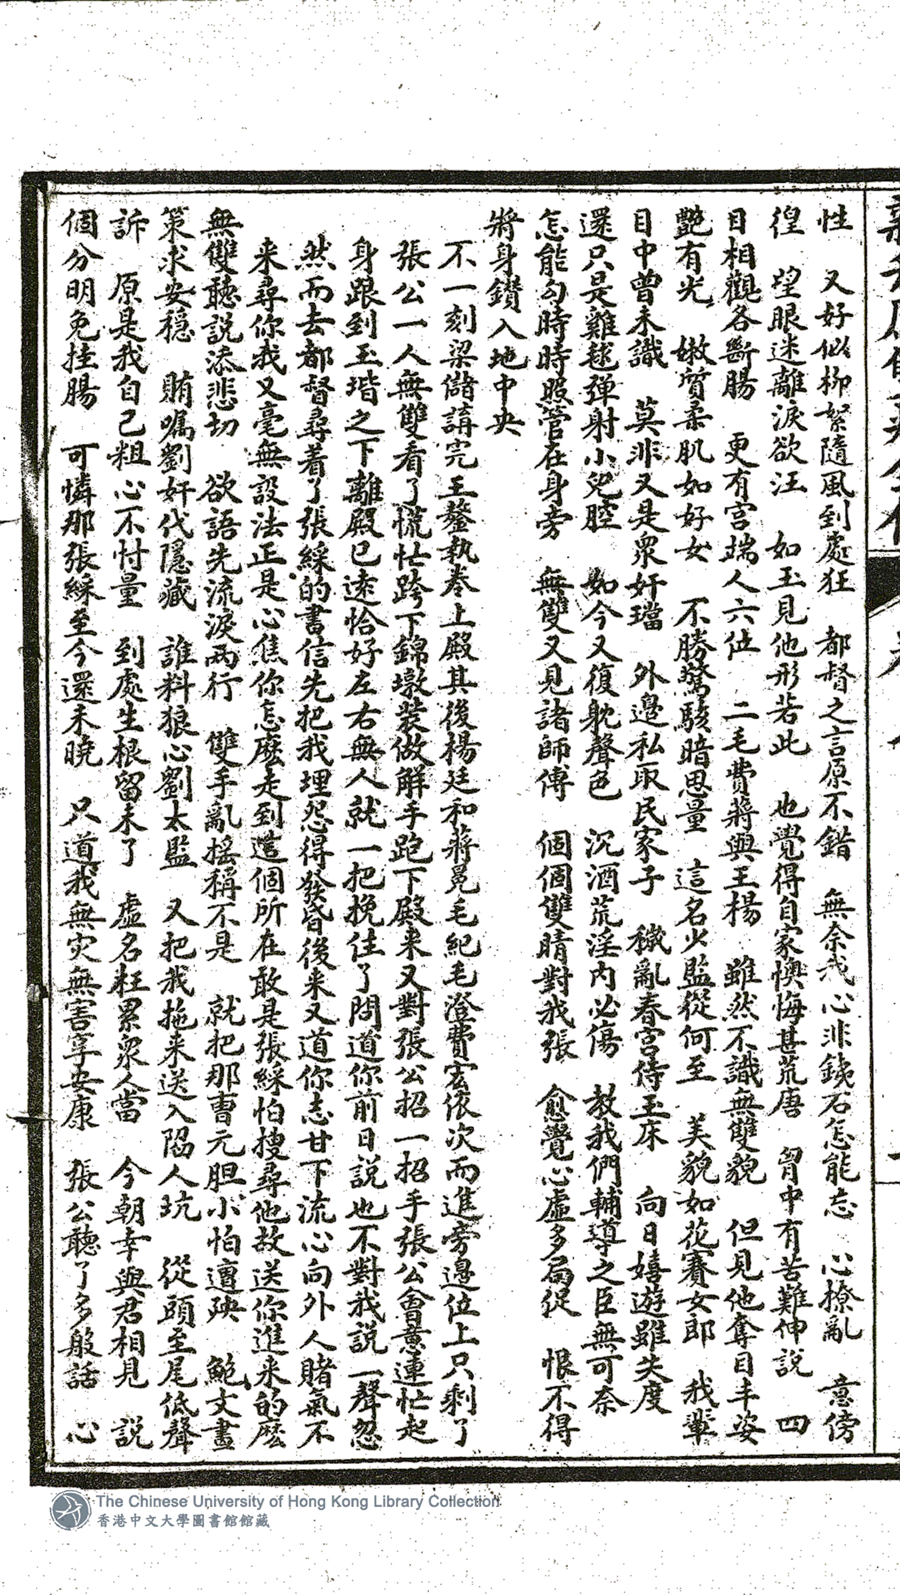 性　又好似柳絮隨風到處狂　都督之言原不錯　無奈我心非鉄石怎能忘　心撩亂　意傍
徨　望眼迷離淚欲汪　如玉見他形若此　也覺得自家懊悔甚荒唐　胷中有苦難伸說　四
目相觀各斷腸　更有宫端人六位　二毛費蔣與王楊　雖然不識無雙貌　但見他奪目丰姿
艷有光　嫩質柔肌如好女　不勝驚駭暗思量　這名少監從何至　美貌如花賽女郎　我輩
目中曾未識　莫非又是衆奸璫　外邊私取民家子　穢亂春宮侍玉床　向日嬉遊雖失度
還只是雞毬弹射小兒腔　如今又復躭聲色　沉酒荒淫内必傷　教我們輔導之臣無可奈
怎能勾時時照管在身旁　無雙又見諸師傅　個個雙睛對我張　愈覺心虛多局促　恨不得
將身鑽入地中央
不一刻梁儲講完王鏊執卷上殿其後楊廷和蔣冕毛紀毛澄費宏依次而進旁邊位上只剩了
張公一人無雙看了慌忙跨下錦墩裝做解手跑下殿来又對張公招一招手張公會意連忙起
身跟到玉堦之下離殿已遠恰好左右無人就一把挽住了問道你前日説也不對我説一聲忽
然而去都督尋着了張綵的書信先把我埋怨得發昏後来又道你志甘下流心向外人賭氣不
来尋你我又毫無設法正是心焦你怎麽走到這個所在敢是張綵怕搜尋他故送你進来的麽
無雙聽説添悲切　欲語先流淚兩行　雙手亂摇稱不是　就把那曹元胆小怕遭殃　鮑文畫
策求安穩　賄嘱劉奸代隱藏　誰料狼心劉太監　又把我拖来送入陷人坑　從頭至尾低聲
訴　原是我自己粗心不忖量　到處生根留未了　虛名枉累衆人當　今朝幸與君相見　説
個分明免挂腸　可憐那張綵至今還未曉　只道我無灾無害享安康　張公聽了多般話　心
The Chinese University of Hong Kong Library Collection
香港中文大學圖書館館藏